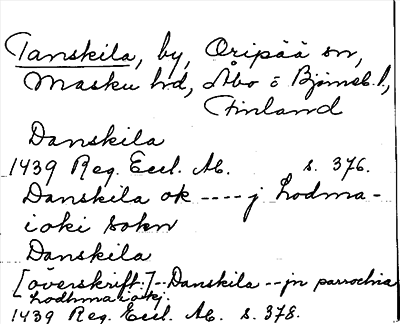 Tanskila, by, Oripää sn,
Masku hd, Åbo o Björneb. l,
Finland
Danskila
1439 Reg. Eccl. Ab. s. 376.
Danskila ok ---- j Lodma-
ioki sokn
Danskila
[överskrift:]--Danskila--jn parrochia
Lodhmaioki.
1439 Reg. Eccl. Ab. s. 378.